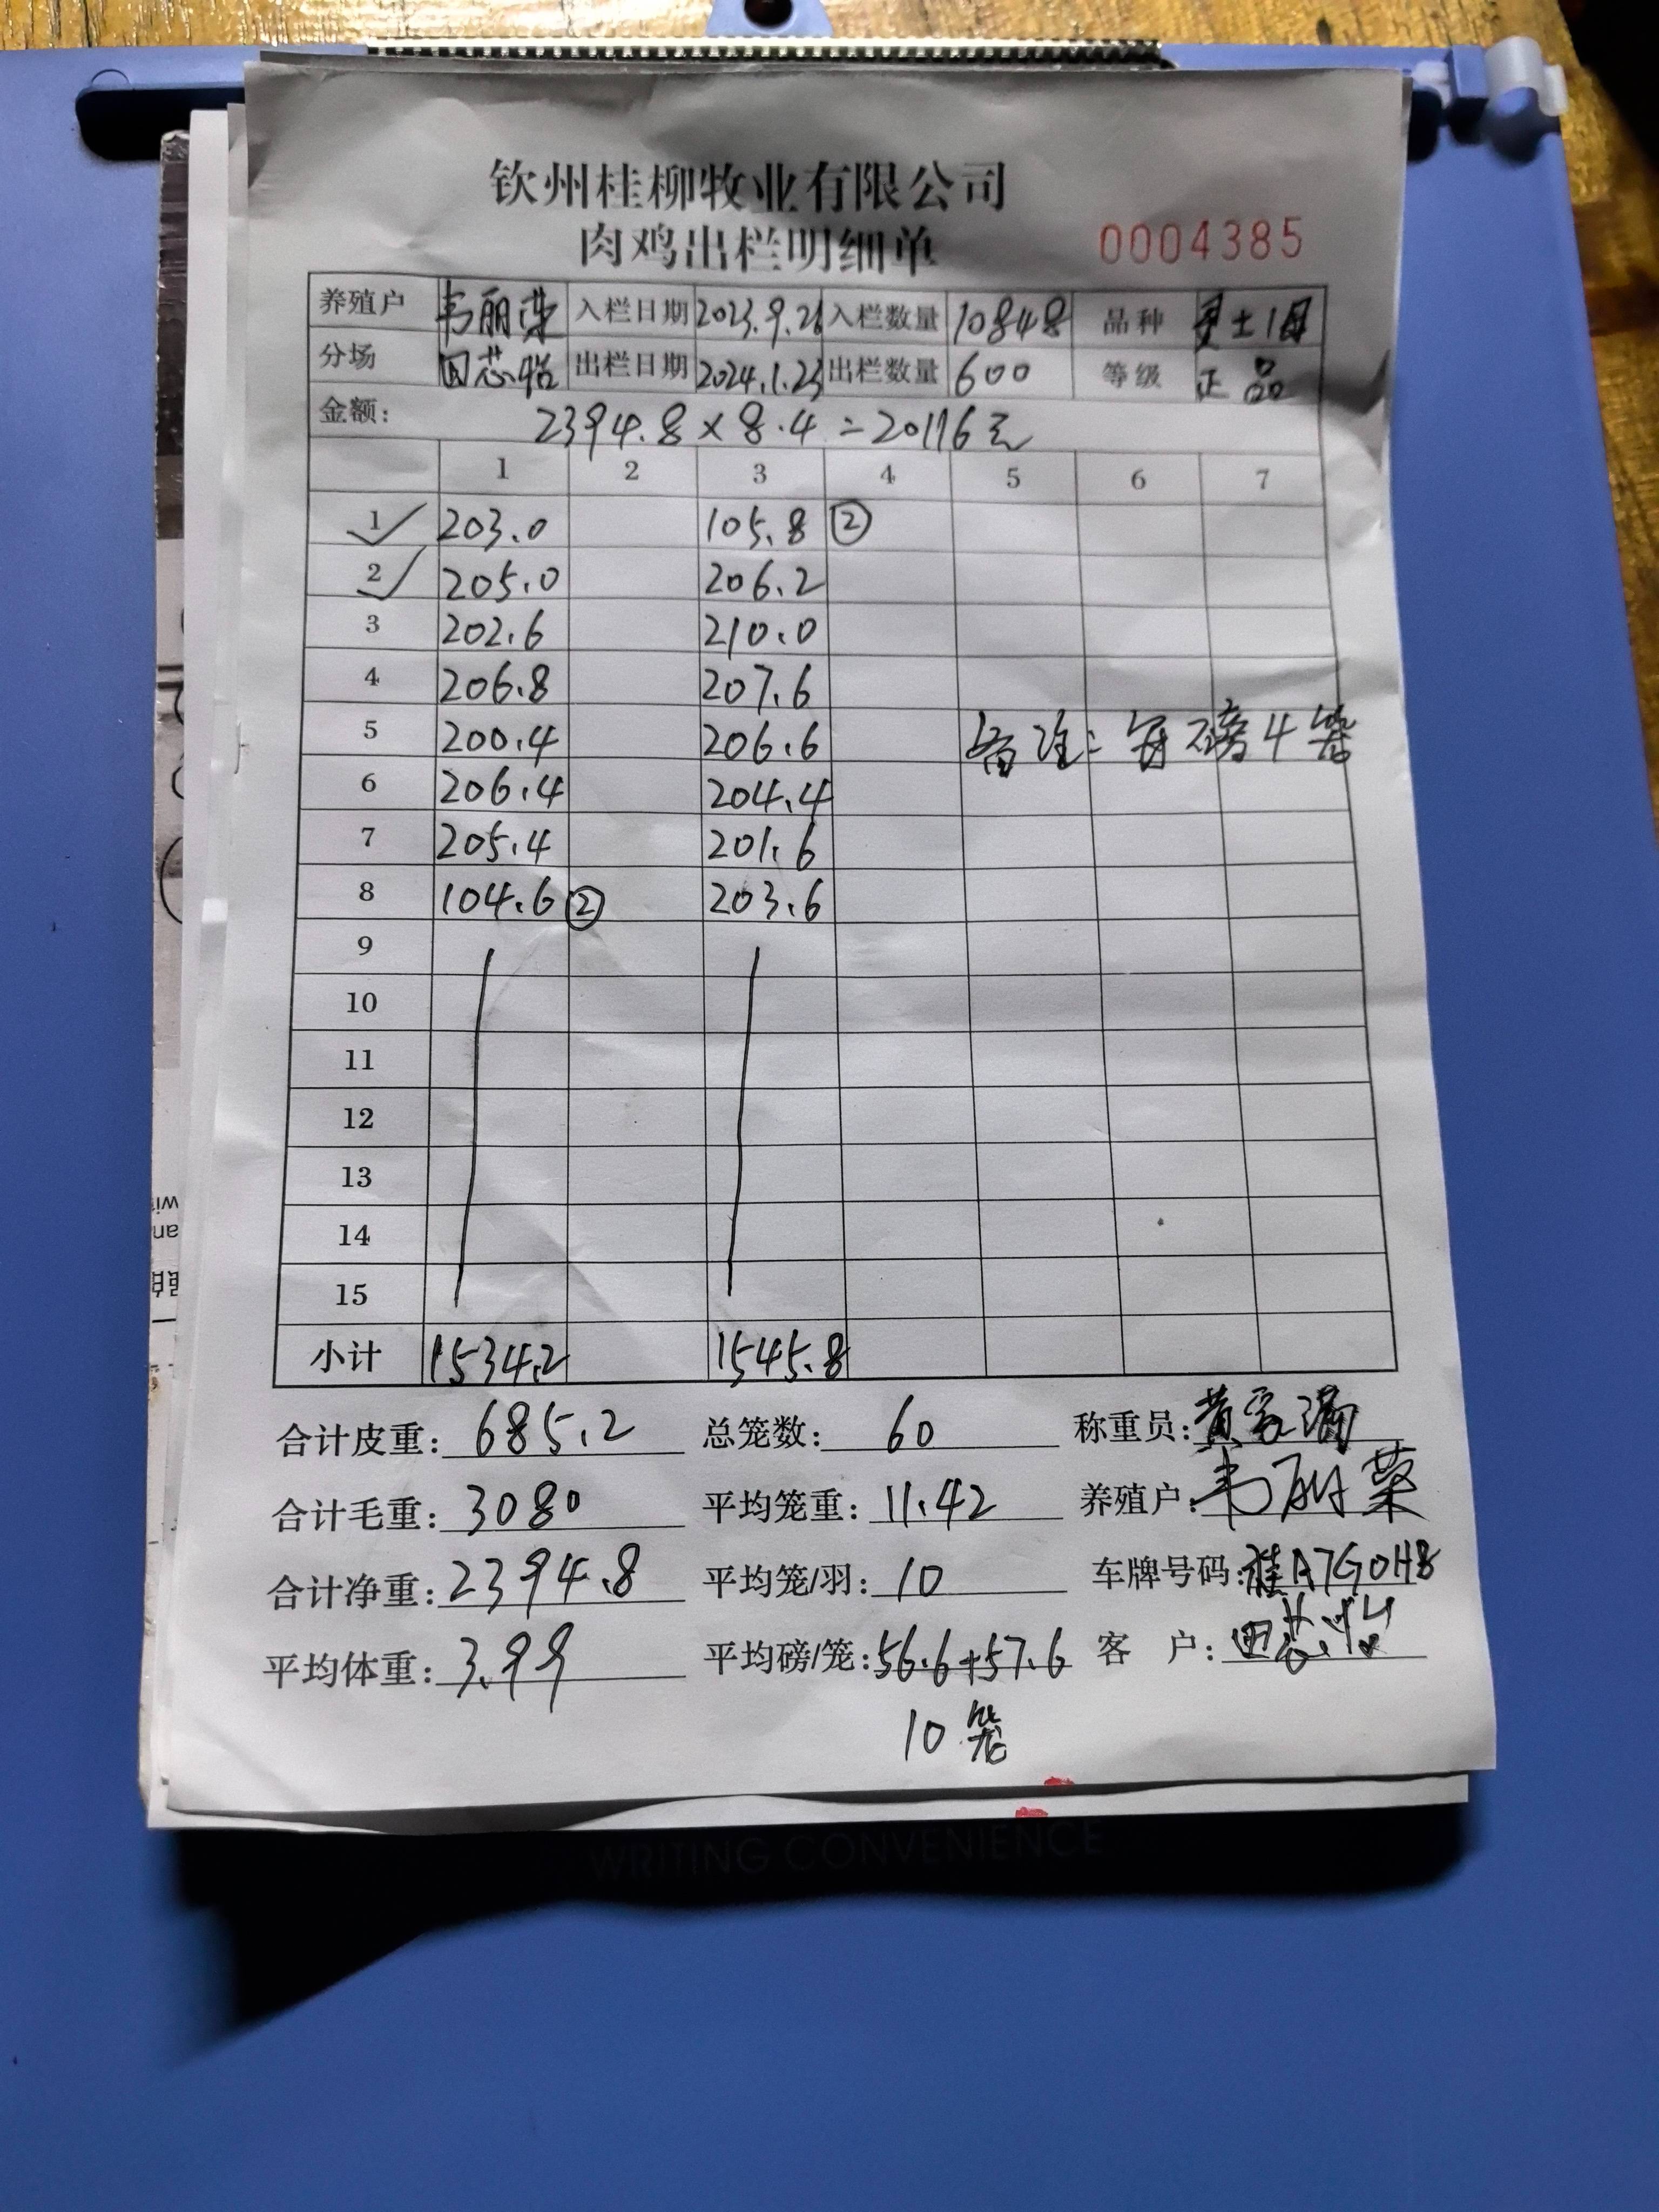 钦州桂柳牧业有限公司
肉鸡出栏明细单 0004385
养殖户 韦丽荣 入栏日期 2023.9.26 入栏数量 10848 品种
分场 田芯怡 出栏日期 2024.1.23 出栏数量 600 等级 正品
金额: 2394.8×8.4=20116元
1 2 3 4 5 6 7
1 203.0 105.8 ②
2 205.0 206.2
3 202.6 210.0
4 206.8 207.6
5 200.4 206.6 备注:每磅4笼
6 206.4 204.4
7 205.4 201.6
8 104.6 ② 203.6
9
10
11
12
13
14
15
小计 1534.2 1545.8
合计皮重: 685.2 总笼数: 60 称重员: 黄
合计毛重: 3080 平均笼重: 11.42 养殖户: 韦丽荣
合计净重: 2394.8 平均笼/羽: 10 车牌号码: 桂A7G0H8
平均体重: 3.99 平均磅/笼: 56.6+57.6 客 户: 田芯怡
10笼
WRITING CONVENIENCE